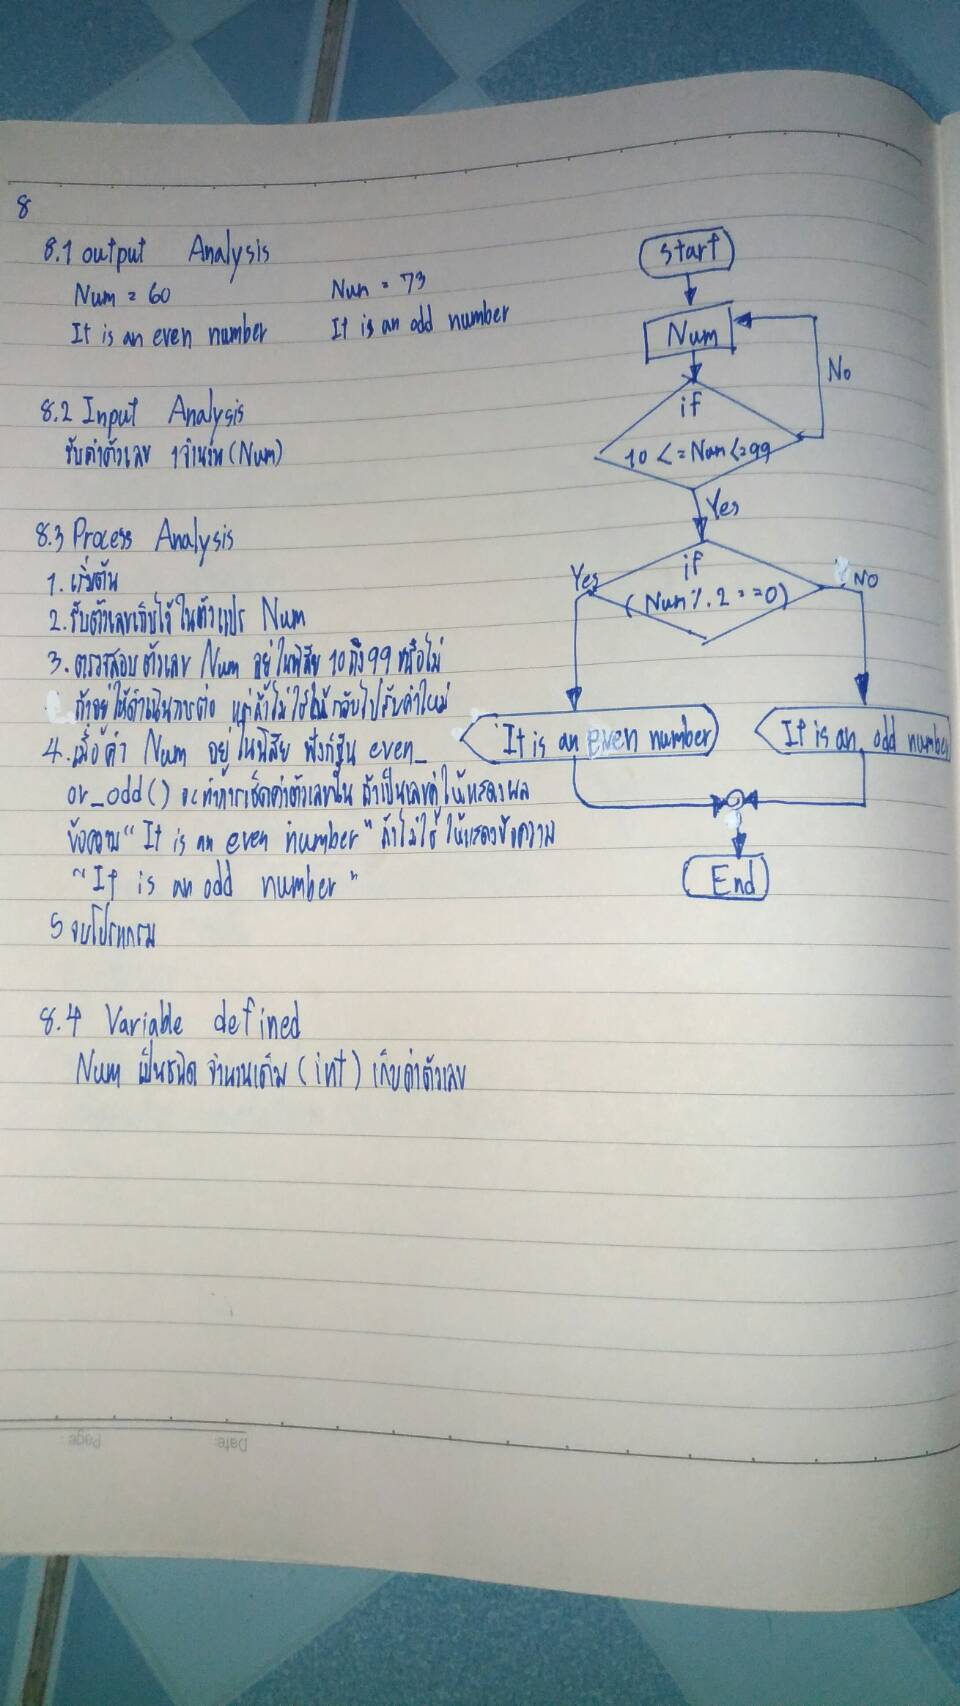 8
8.1 output Analysis
Num = 60
It is an even number
Nun = 73
It is an odd number
8.2 Input Analysis
รับค่าตัวเลข 1จำนวน (Num)
8.3 Process Analysis
1. เริ่มต้น
2. รับตัวเลขเก็บไว้ในตัวแปร Num
3. ตรวจสอบตัวเลข Num อยู่ในพิสัย 10 ถึง 99 หรือไม่
ถ้าอยู่ให้ดำเนินการต่อ แต่ถ้าไม่ใช่ให้กลับไปรับค่าใหม่
4. เมื่อค่า Num อยู่ในพิสัย ฟังก์ชัน even_
or_odd() จะทำการเช็คค่าตัวเลขใน ถ้าเป็นเลขคู่ให้แสดงผล
ข้อความ "It is an even number" ถ้าไม่ใช่ ให้แสดงข้อความ
"It is an odd number"
5 จบโปรแกรม
8.4 Variable defined
Num เป็นชนิด จำนวนเต็ม (int) เก็บค่าตัวเลข
Start
Num
No
if
10 <= Num <= 99
Yes
if
(Num % 2 == 0)
Yes
No
It is an even number
It is an odd number
End
Date:
Page: